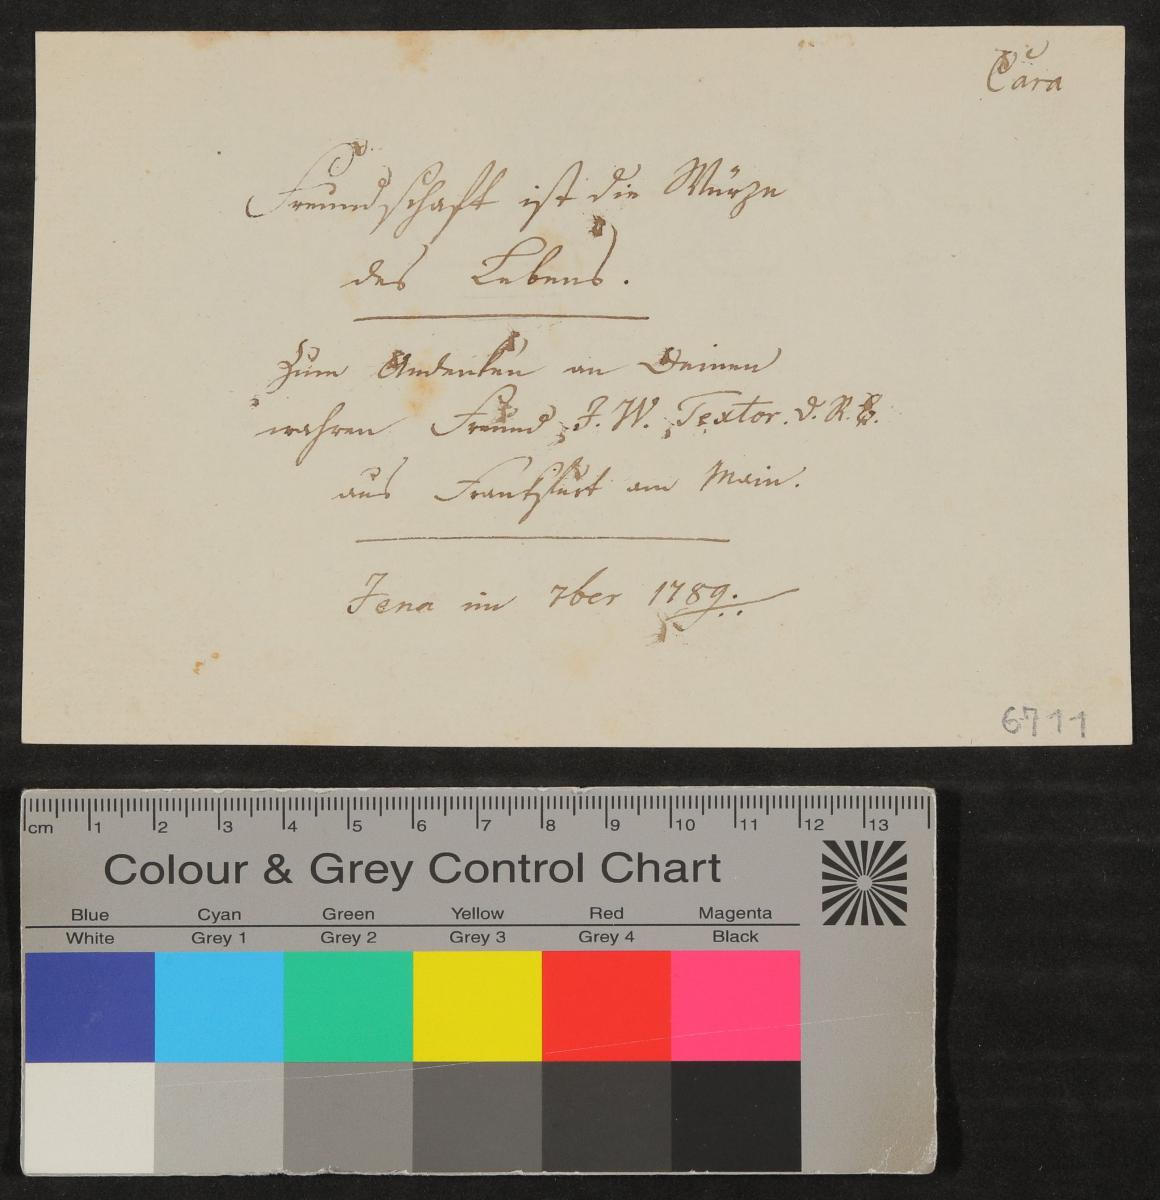 Cara
Freundschaft ist die Würze
des Lebens.
Zum Andenken an Deinen
wahren Freund J. W. Textor. d. R. B.
aus Frankfurt am Main.
Jena im 7ber 1789.
6711
cm 1 2 3 4 5 6 7 8 9 10 11 12 13
Colour & Grey Control Chart
Blue Cyan Green Yellow Red Magenta
White Grey 1 Grey 2 Grey 3 Grey 4 Black